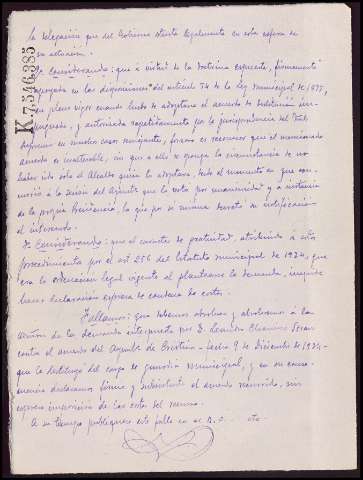 la delegación que del Gobierno ostenta legalmente en esta esfera de
su actuación.
K7.546.385
Considerando: que a virtud de la doctrina expuesta, firmemente
apoyada en las disposiciones del artículo 74 de la Ley Municipal de 1877,
en pleno vigor cuando hubo de adoptarse el acuerdo de destitución im-
pugnado, y autorizada repetidamente por la jurisprudencia del Tral
Supremo en muchos casos semejantes, forzoso es reconocer que el mencionado
acuerdo es inatacable, sin que a ello se oponga la circunstancia de no
haber sido solo el Alcalde quien lo adoptara, desde el momento en que con-
currió a la sesión del Ayunto que lo votó por unanimidad y a instancia
de la propia Presidencia, la que por sí misma decretó su notificación
al interesado.
Considerando: que el carácter de gratuidad, atribuido a estos
procedimientos por el art 256 del Estatuto municipal de 1924, que
era la ordenación legal vigente al plantearse la demanda, impide
hacer declaración expresa de condena de costas.
Fallamos: que debemos absolver y absolvemos a la
de la demanda interpuesta por D.
contra el acuerdo del Ayunto de fecha 9 de Diciembre de 1934
que le destituyó del cargo de guardia municipal, y en su conse-
cuencia declaramos firme y subsistente el acuerdo recurrido, sin
expresa imposición de las costas del recurso.
A su tiempo publíquese este fallo en el B.O. ... etc.